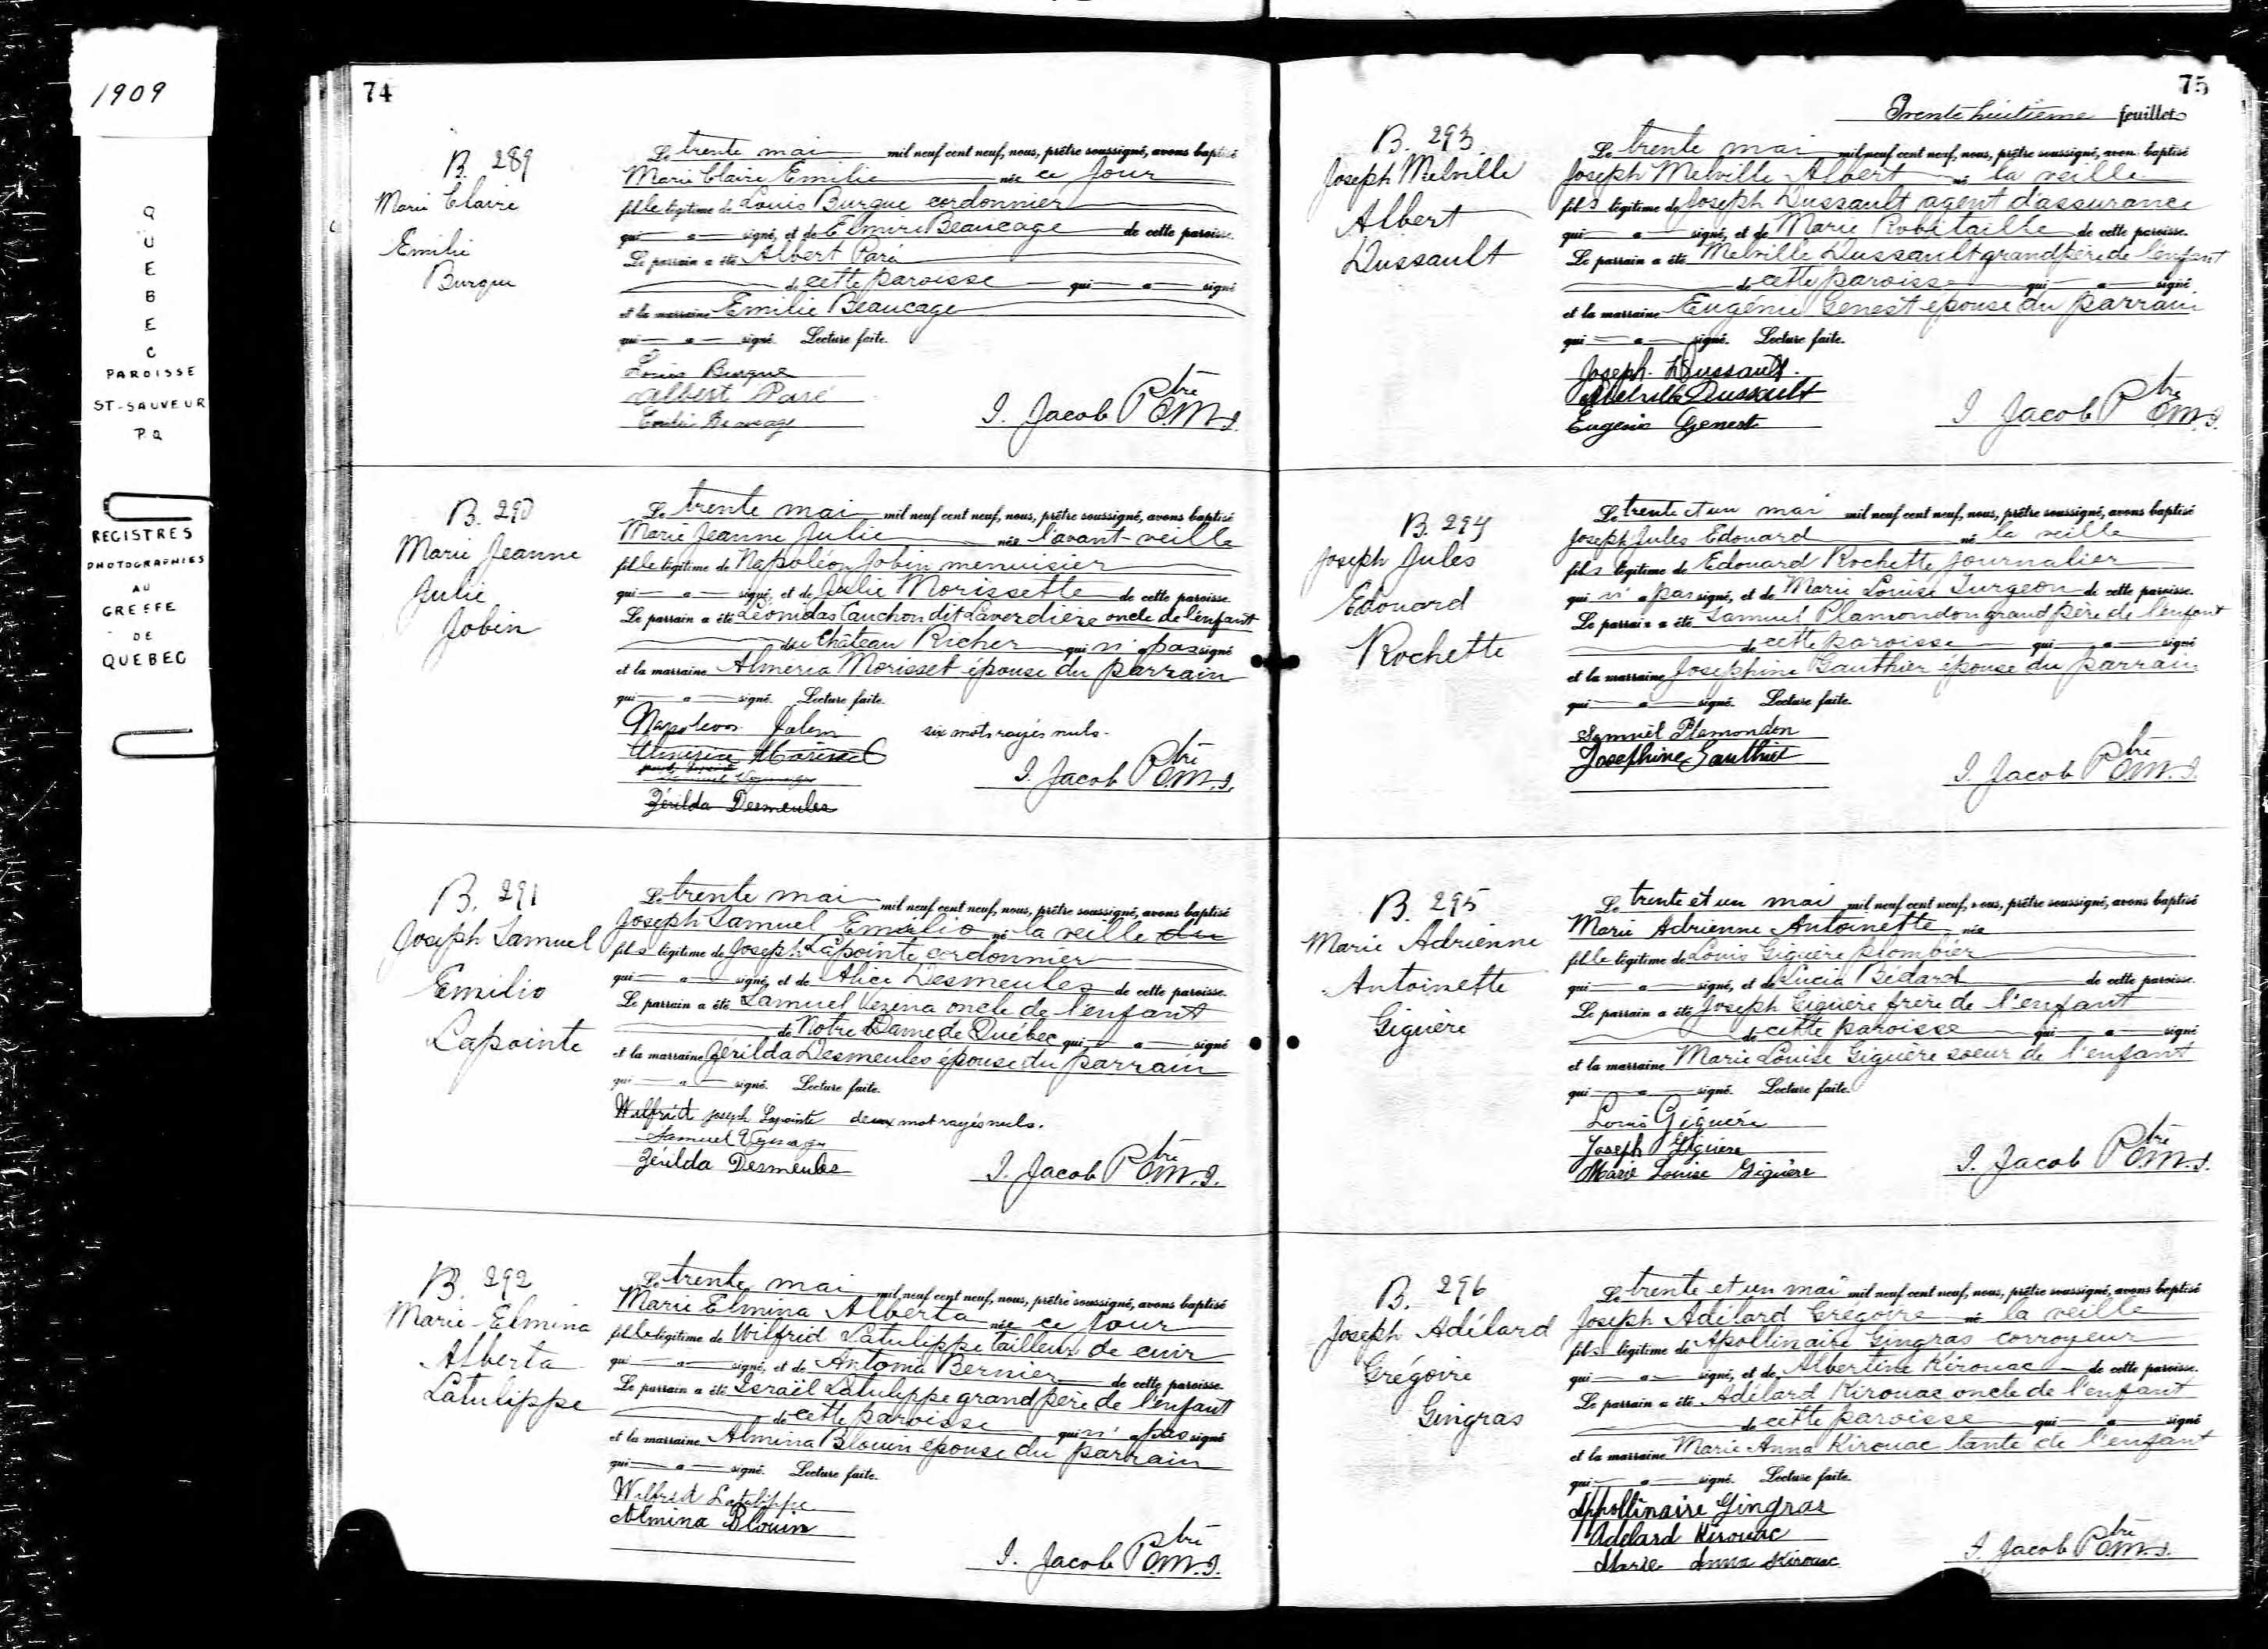 1909
QUEBEC
PAROISSE
ST-SAUVEUR
P.Q
REGISTRES
PHOTOGRAPHIES
AU
GREFFE
DE
QUEBEC
74
B. 289
Marie Claire
Emilie
Burque
Le trente mai mil neuf cent neuf, nous, prêtre soussigné, avons baptisé
Marie Claire Emilie née ce jour
fille légitime de Louis Burque cordonnier
qui a signé, et de Elmire Beaucage de cette paroisse.
Le parrain a été Albert Paré
de cette paroisse qui a signé
et la marraine Emilie Beaucage
qui a signé. Lecture faite.
Louis Burque
Albert Paré
Emilie Beaucage
I. Jacob Ptre O.M.I.
B. 290
Marie Jeanne
Julie
Jobin
Le trente mai mil neuf cent neuf, nous, prêtre soussigné, avons baptisé
Marie Jeanne Julie née l'avant-veille
fille légitime de Napoléon Jobin menuisier
qui a signé, et de Julie Morissette de cette paroisse.
Le parrain a été Léonidas Cauchon dit Laverdière oncle de l'enfant
du Château Richer qui n'a pas signé
et la marraine Almeria Morisset épouse du parrain
qui a signé. Lecture faite.
Napoleon Jobin six mots rayés nuls.
Almeria Morisset
Zérilda Desmeules
I. Jacob Ptre O.M.I.
B. 291
Joseph Samuel
Emilio
Lapointe
Le trente mai mil neuf cent neuf, nous, prêtre soussigné, avons baptisé
Joseph Samuel Emilio né la veille du
fils légitime de Joseph Lapointe cordonnier
qui a signé, et de Alice Desmeules de cette paroisse.
Le parrain a été Samuel Vezina oncle de l'enfant
de Notre Dame de Québec qui a signé
et la marraine Zérilda Desmeules épouse du parrain
qui a signé. Lecture faite.
Wilfrid Joseph Lapointe deux mot rayés nuls.
Samuel
Zérilda Desmeules
I. Jacob Ptre O.M.I.
B. 292
Marie-Elmina
Alberta
Latulippe
Le trente mai mil neuf cent neuf, nous, prêtre soussigné, avons baptisé
Marie Elmina Alberta née ce jour
fille légitime de Wilfrid Latulippe tailleur de cuir
qui a signé, et de Antonia Bernier de cette paroisse.
Le parrain a été Israïl Latulippe grand père de l'enfant
de cette paroisse qui n'a pas signé
et la marraine Almina Blouin épouse du parrain
qui a signé. Lecture faite.
Wilfrid Latulippe
Almina Blouin
I. Jacob Ptre O.M.I.
75
Trente huitième feuillet
B. 293
Joseph Melville
Albert
Dussault
Le trente mai mil neuf cent neuf, nous, prêtre soussigné, avons baptisé
Joseph Melville Albert né la veille
fils légitime de Joseph Dussault agent d'assurance
qui a signé, et de Marie Robitaille de cette paroisse.
Le parrain a été Melville Dussault grand père de l'enfant
de cette paroisse qui a signé
et la marraine Eugénie Genest épouse du parrain
qui a signé. Lecture faite.
Joseph Dussault.
Melville Dussault
Eugénie Genest
I. Jacob Ptre O.M.I.
B. 294
Joseph Jules
Edouard
Rochette
Le trente et un mai mil neuf cent neuf, nous, prêtre soussigné, avons baptisé
Joseph Jules Edouard né la veille
fils légitime de Edouard Rochette journalier
qui n'a pas signé, et de Marie Louise Turgeon de cette paroisse.
Le parrain a été Samuel Plamondon grand père de l'enfant
de cette paroisse qui a signé
et la marraine Josephine Gauthier épouse du parrain
qui a signé. Lecture faite.
Samuël Plamondon
Josephine Gauthier
I. Jacob Ptre O.M.I.
B. 295
Marie Adrienne
Antoinette
Giguère
Le trente et un mai mil neuf cent neuf, nous, prêtre soussigné, avons baptisé
Marie Adrienne Antoinette née
fille légitime de Louis Giguère plombier
qui a signé, et de Lucia Bédard de cette paroisse.
Le parrain a été Joseph Giguère frère de l'enfant
de cette paroisse qui a signé
et la marraine Marie Louise Giguère soeur de l'enfant
qui a signé. Lecture faite.
Louis Giguère
Joseph Giguère
Marie Louise Giguère
I. Jacob Ptre O.M.I.
B. 296
Joseph Adélard
Grégoire
Gingras
Le trente et un mai mil neuf cent neuf, nous, prêtre soussigné, avons baptisé
Joseph Adélard Grégoire né la veille
fils légitime de Apollinaire Gingras corroyeur
qui a signé, et de Albertine Kirouac de cette paroisse.
Le parrain a été Adélard Kirouac oncle de l'enfant
de cette paroisse qui a signé
et la marraine Marie Anna Kirouac tante de l'enfant
qui a signé. Lecture faite.
Appollinaire Gingras
Adélard Kirouac
Marie Anna Kirouac
I. Jacob Ptre O.M.I.